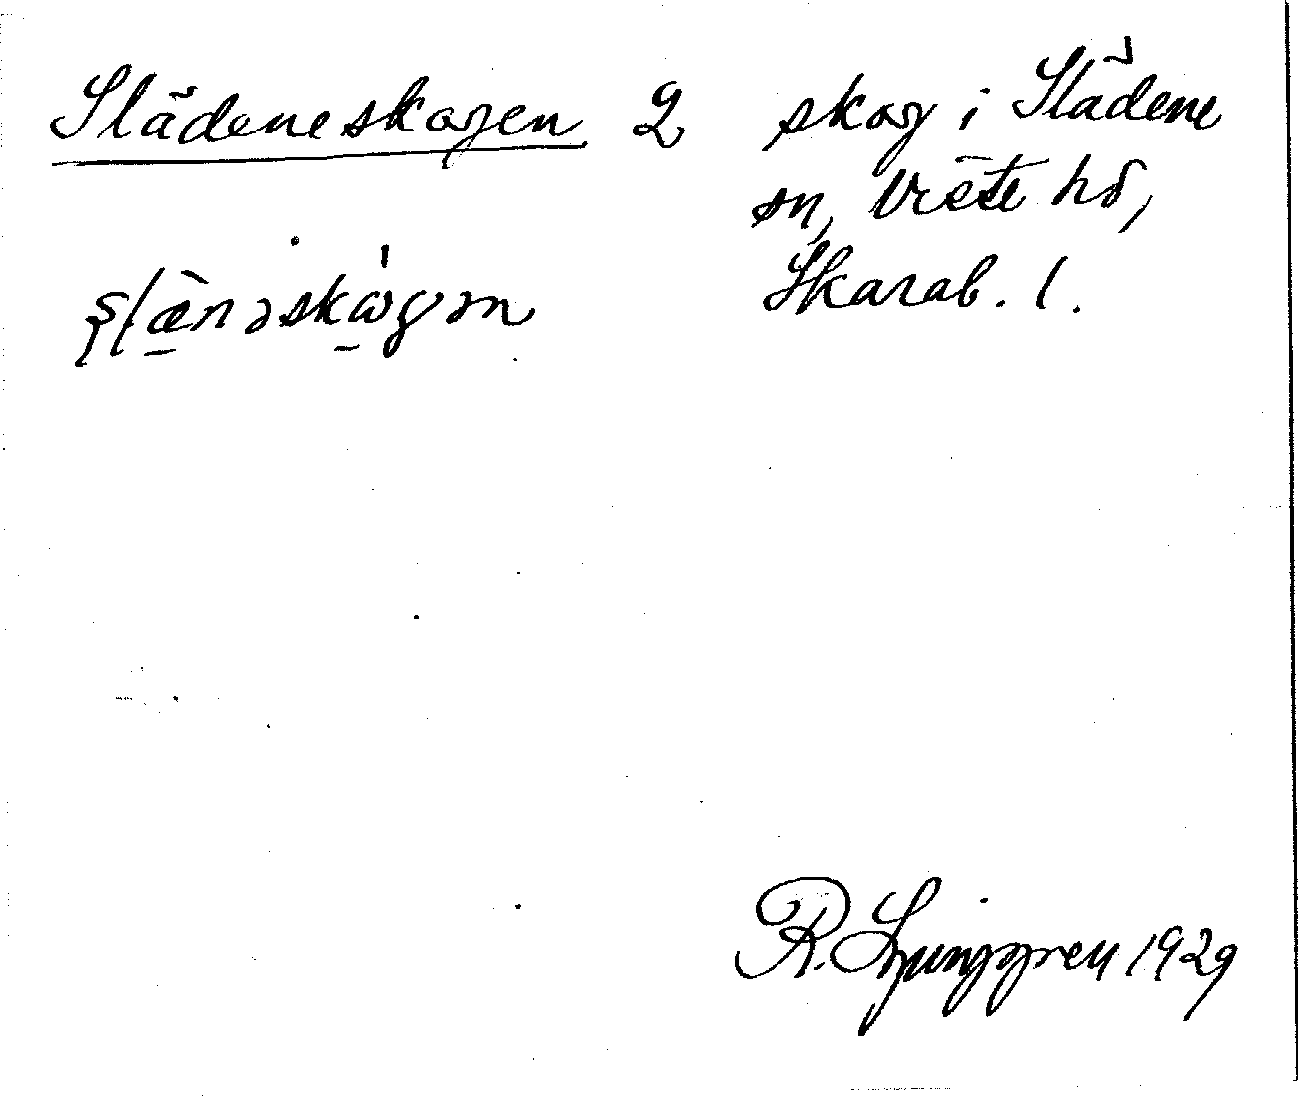 Slädeneskogen 2 skog i Slädene
sn, Viste hd,
Skarab. l.
R. Ljunggren 1929